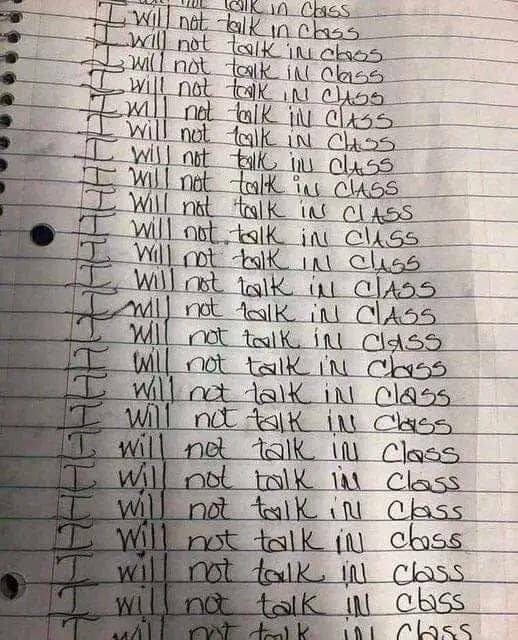 not talk in Class
I will not talk in Class
I will not talk iN Class
I will not talk iN Class
I will not talk iN ClASS
I will not talk iN ClASS
I will not talk iN ClASS
I will not talk iN ClASS
I will not talk iN ClASS
I will not talk iN ClASS
I will not talk iN ClASS
I will not talk iN ClASS
I will not talk iN ClASS
I will not talk iN ClASS
I will not talk iN Class
I will not talk iN Class
I will not talk iN Class
I will not talk iN Class
I will not talk iN Class
I will not talk iN Class
I will not talk iN Class
I will not talk iN Class
I will not talk iN Class
I will not talk iN Class
will not talk iN Class